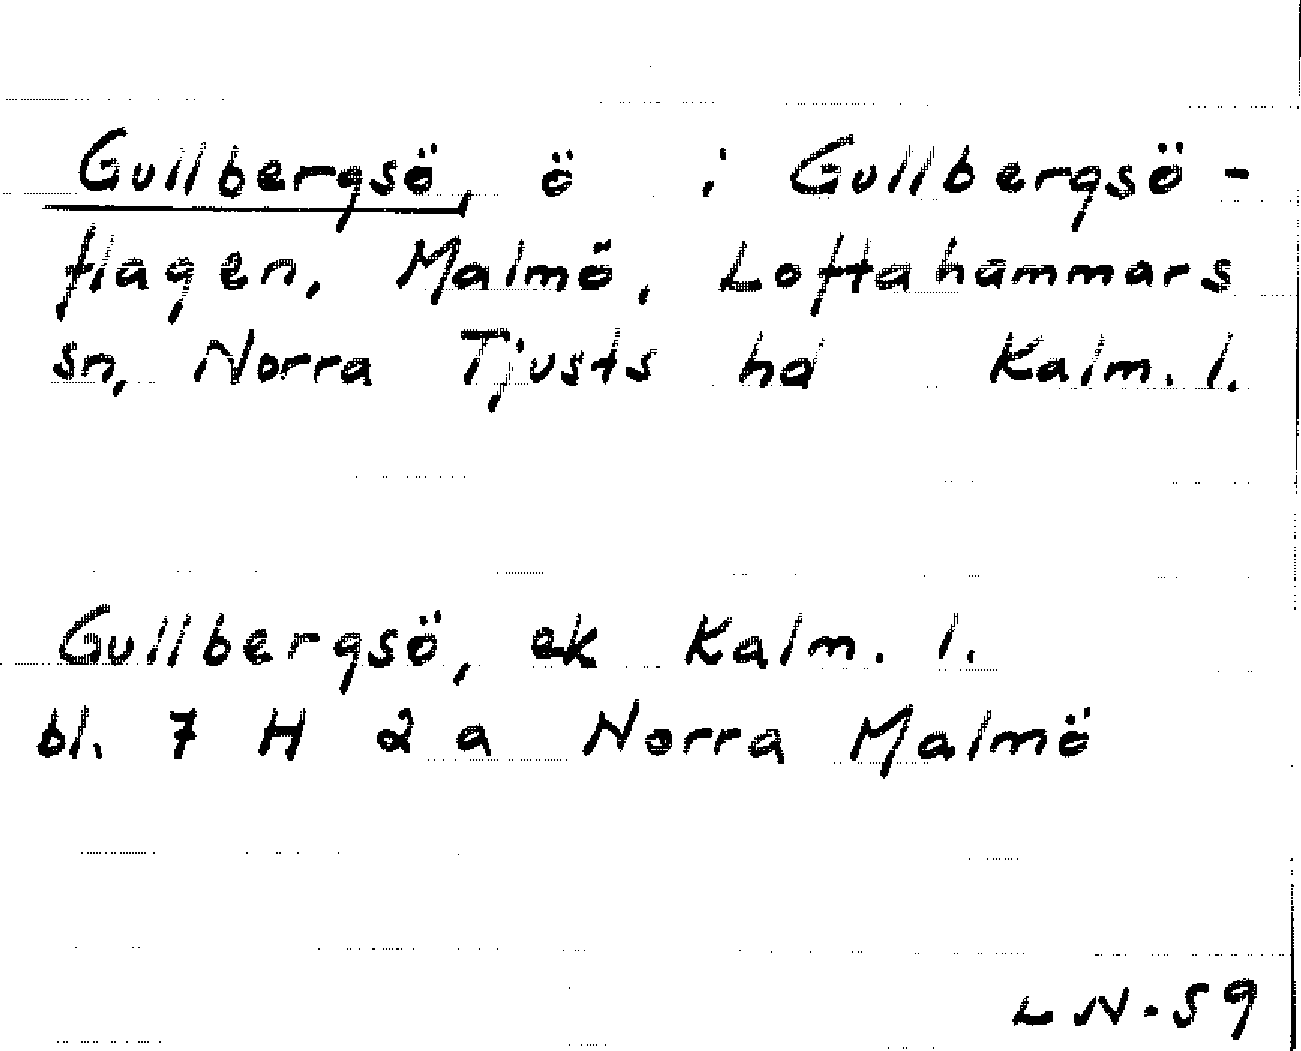 Gullbergsö, ö i Gullbergsö-
flagen, Malmö, Loftahammars
sn, Norra Tjusts hd Kalm. l.
Gullbergsö, ek Kalm. l.
bl. 7 H 2 a Norra Malmö
LN-59